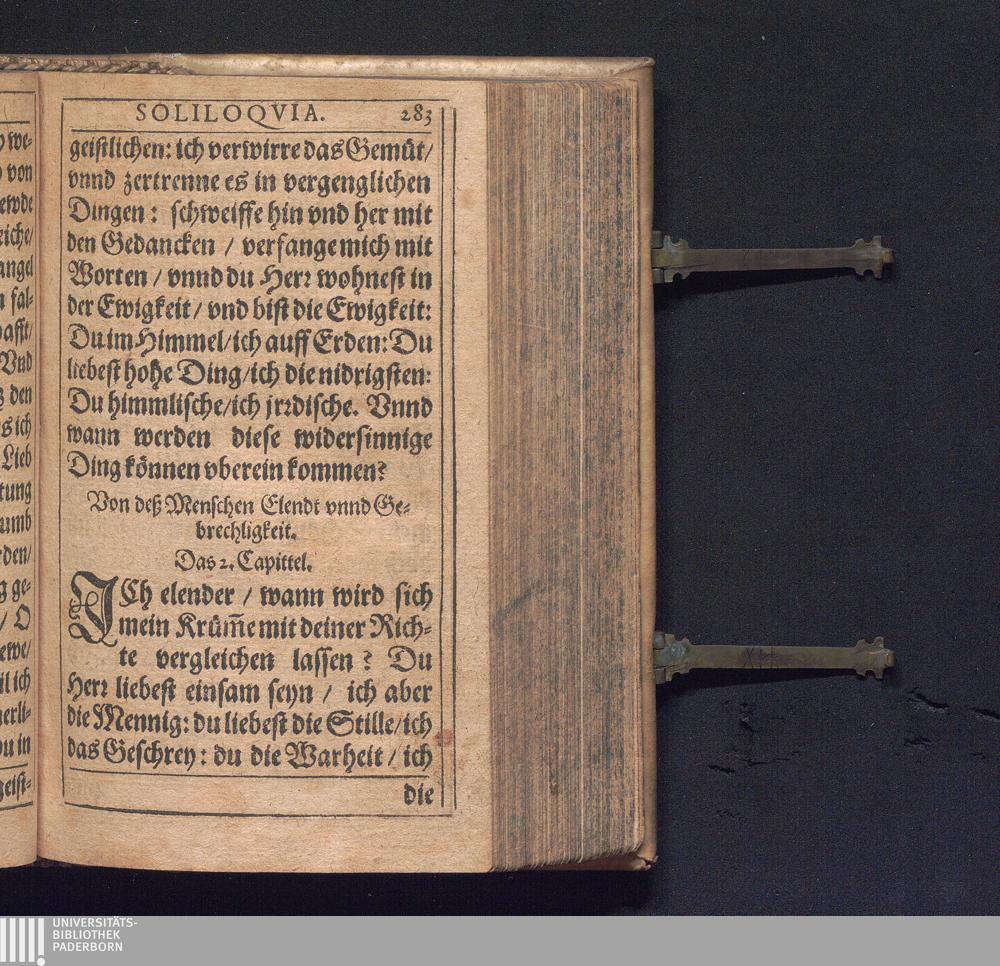 SOLILOQVIA. 283
geistlichen: ich verwirre das Gemüt/
vnnd zertrenne es in vergenglichen
Dingen: schweiffe hin vnd her mit
den Gedancken / verfange mich mit
Worten / vnnd du Herr wohnest in
der Ewigkeit / vnd bist die Ewigkeit:
Du im Himmel/ich auff Erden: Du
liebest hohe Ding/ich die nidrigsten:
Du himmlische/ich jrrdische. Vnnd
wann werden diese widersinnige
Ding können vberein kommen?
Von deß Menschen Elendt vnnd Ge-
brechligkeit.
Das 2. Capittel.
ICh elender / wann wird sich
mein Krüm̄e mit deiner Rich-
te vergleichen lassen? Du
Herr liebest einsam seyn / ich aber
die Mennig: du liebest die Stille/ich
das Geschrey: du die Warheit / ich
die
UNIVERSITÄTS-
BIBLIOTHEK
PADERBORN